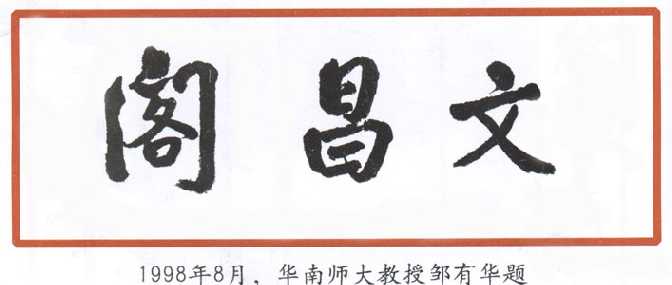 文昌阁
1998年8月，华南师大教授邹有华题